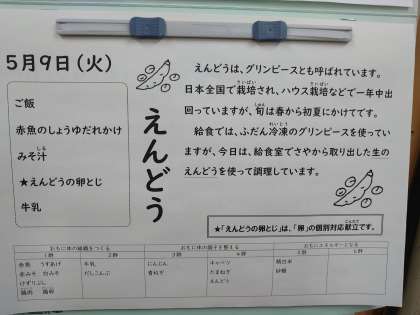 5月9日（火）
ご飯
赤魚のしょうゆだれかけ
みそ汁
★えんどうの卵とじ
牛乳
えんどう
えんどうは、グリンピースとも呼ばれています。
日本全国で栽培され、ハウス栽培などで一年中出
回っていますが、旬は春から初夏にかけてです。
給食では、ふだん冷凍のグリンピースを使ってい
ますが、今日は、給食室でさやから取り出した生の
えんどうを使って調理しています。
★「えんどうの卵とじ」は、「卵」の個別対応献立です。
おもに体の組織をつくる おもに体の調子を整える おもにエネルギーとなる
1群 2群 3群 4群 5群 6群
赤魚 うすあげ 牛乳 にんじん キャベツ 精白米
赤みそ 白みそ だしこんぶ 青ねぎ たまねぎ 砂糖
けずりぶし えんどう
鶏肉 鶏卵